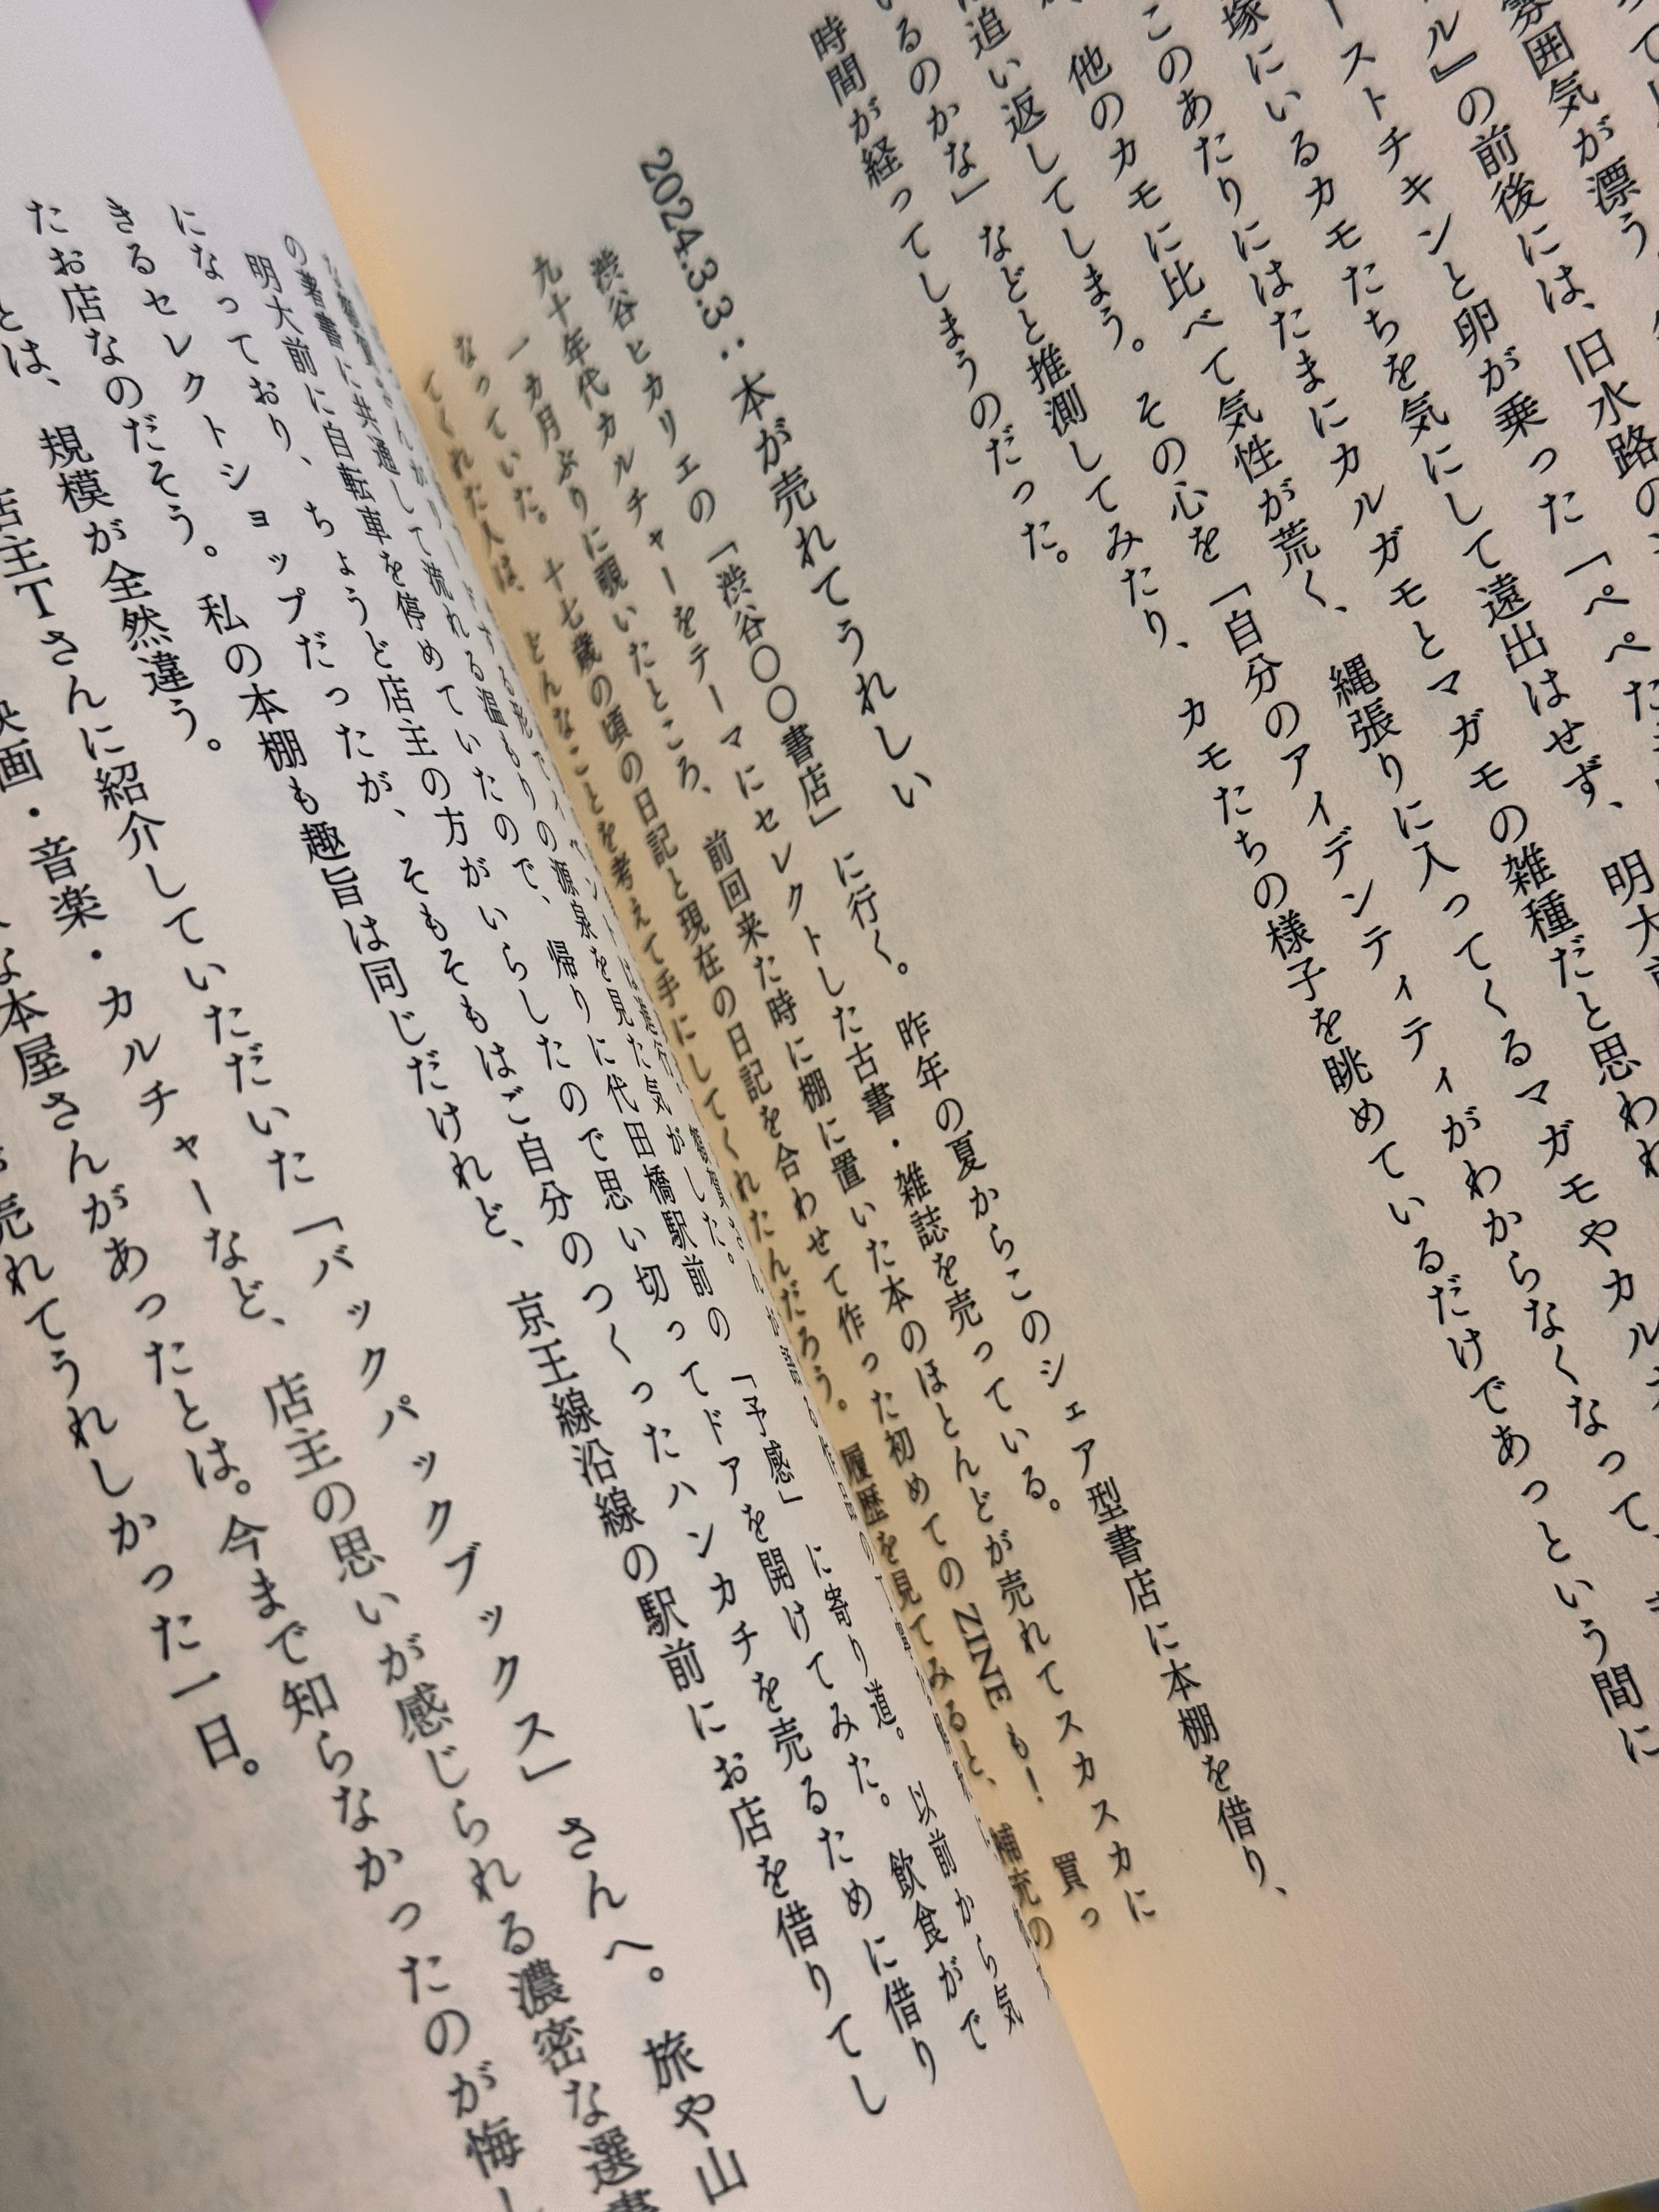 雰囲気が漂う。
ル』の前後には、旧水路の
ーストチキンと卵が乗った「ペペた
塚にいるカモたちを気にして遠出はせず、明大前
このあたりにはたまにカルガモとマガモの雑種だと思われ
他のカモに比べて気性が荒く、縄張りに入ってくるマガモやカルガ
追い返してしまう。その心を「自分のアイデンティティがわからなくなって、
いるのかな」などと推測してみたり、カモたちの様子を眺めているだけであっという間に
時間が経ってしまうのだった。
2024.3.3：本が売れてうれしい
渋谷ヒカリエの「渋谷〇〇書店」に行く。昨年の夏からこのシェア型書店に本棚を借り、
九十年代カルチャーをテーマにセレクトした古書・雑誌を売っている。
一カ月ぶりに覗いたところ、前回来た時に棚に置いた本のほとんどが売れてスカスカに
なっていた。十七歳の頃の日記と現在の日記を合わせて作った初めてのZINEも！ 買っ
てくれた人は、どんなことを考えて手にしてくれたんだろう。履歴を見てみると、補充の
の著書に共通して流れる温もりの源泉を見た気がした。
明大前に自転車を停めていたので、帰りに代田橋駅前の「予感」に寄り道。以前から気
になっており、ちょうど店主の方がいらしたので思い切ってドアを開けてみた。飲食がで
きるセレクトショップだったが、そもそもはご自分のつくったハンカチを売るために借り
たお店なのだそう。私の本棚も趣旨は同じだけれど、京王線沿線の駅前にお店を借りてし
とは、規模が全然違う。
店主Tさんに紹介していただいた「バックパックブックス」さんへ。旅や山
映画・音楽・カルチャーなど、店主の思いが感じられる濃密な選書
な本屋さんがあったとは。今まで知らなかったのが悔し
売れてうれしかった一日。